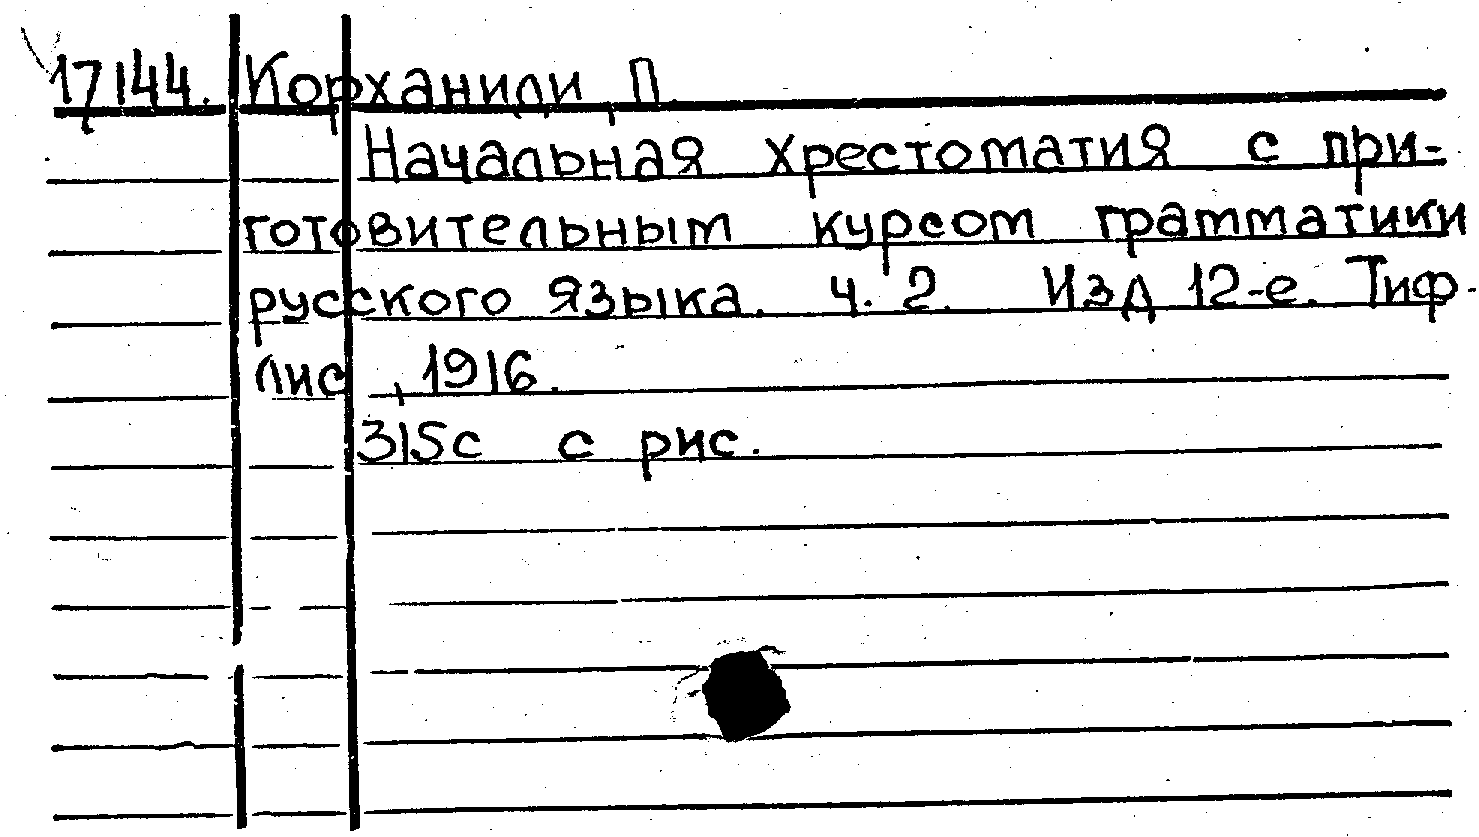 17144. Корханиди П.
Начальная хрестоматия с при-
готовительным курсом грамматики
русского языка. ч. 2. Изд 12-е. Тиф-
лис, 1916.
315с с рис.